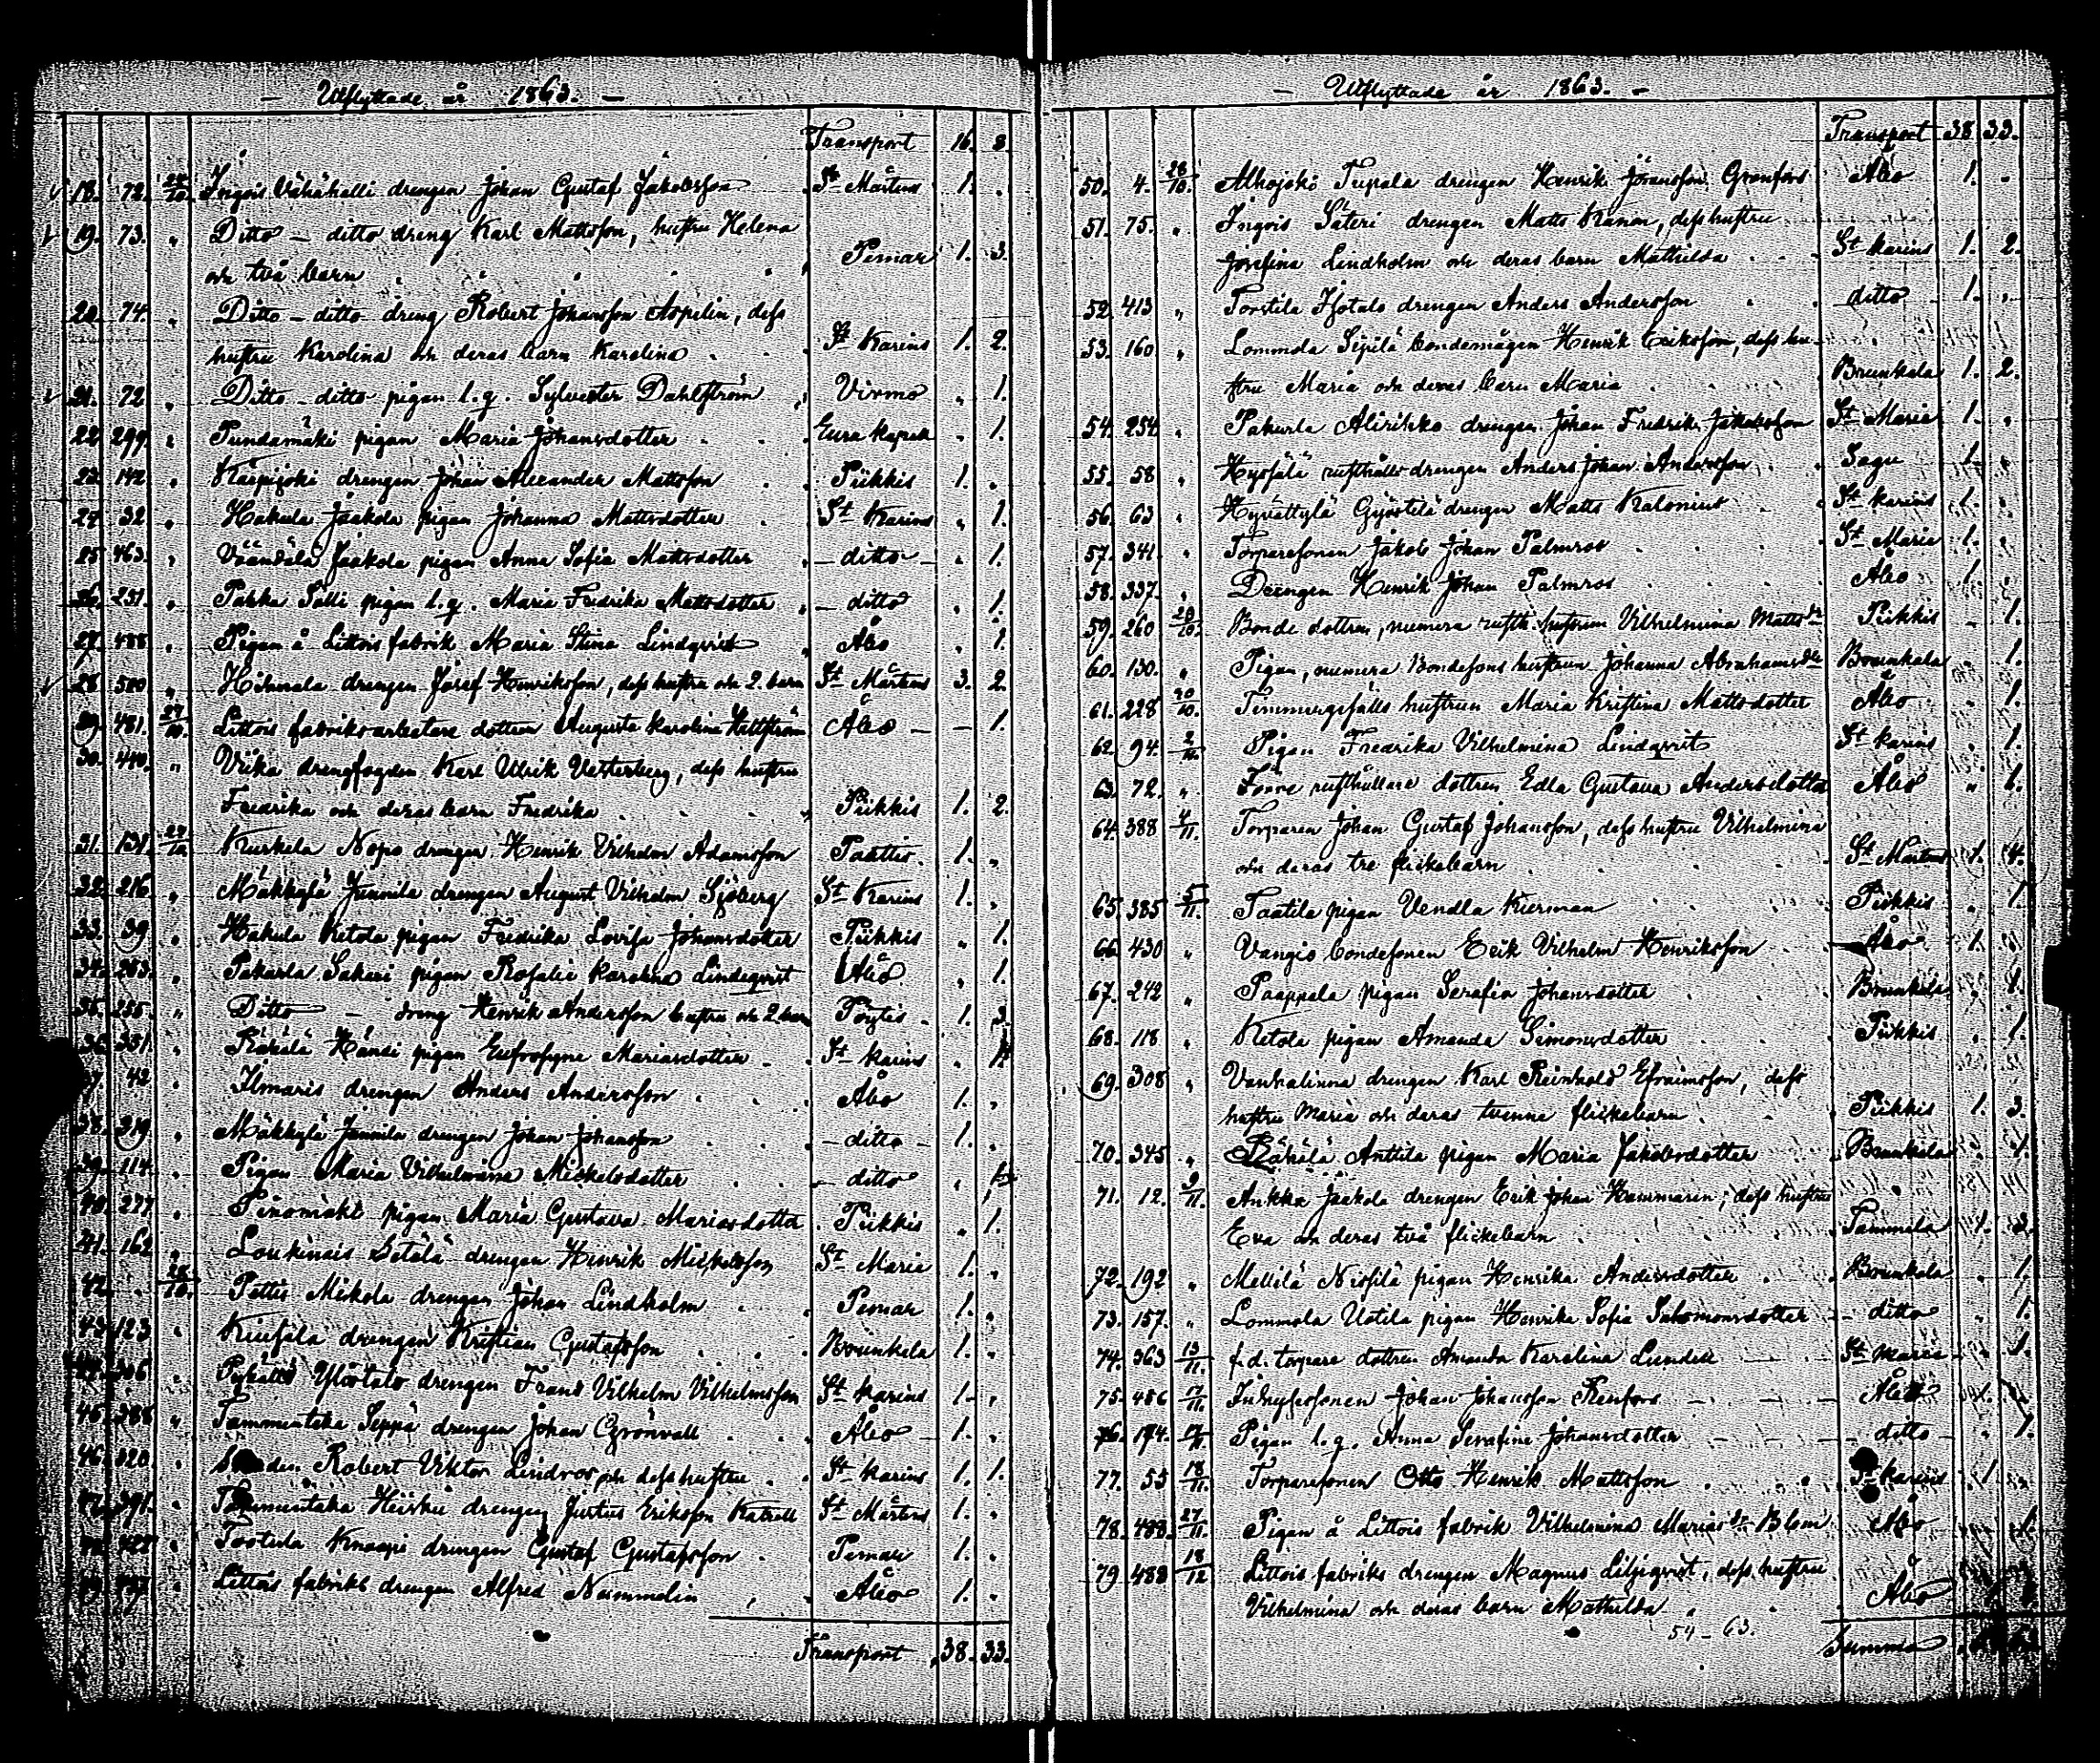 — Utflyttade år 1863. —
Transport 16. 8.
18. 72. 24/10. Ingois Vähähalli drengen Johan Gustaf Jakobsson St Mårtens 1.
19. 73. " Ditto – ditto dreng Karl Mattsson, hustru Helena
och två barn Pemar 1. 3.
20. 74. " Ditto – ditto dreng Robert Johansson Aspelin, dess
hustru Karolina och deras barn Karolina St Karins 1. 2.
21. 72 " Ditto – ditto pigan l.q. Sylvester Dahlström Virmo " 1.
22. 299. " Pundamäki pigan Maria Johansdotter Eura kapell " 1.
23. 142 " Kärpijoki drengen Johan Alexander Mattsson Piikkis 1. "
24. 32 " Hakula Jaakola pigan Johanna Mattsdotter St Karins " 1.
25 463. " Väändälä Jaakola pigan Anna Sofia Mattsdotter – ditto – " 1.
26. 251. " Pahka Sälli pigan l.q. Maria Fredrika Mattsdotter – ditto " 1.
27. 488 " Pigan å Littois fabrik Maria Stina Lindqvist Åbo " 1.
28 500 " Hihnala drengen Josef Henriksson, dess hustru och 2. barn St Mårtens 3. 2.
29. 481. 27/10. Littois fabriksarbetare dottern Augusta Karolina Åbo – – 1.
30. 440. " drengfogden Karl Ulrik Vesterberg, dess hustru
Fredrika och deras barn Fredrika Piikkis 1. 2.
31. 131. 27/10 Kurkela Nopo drengen Henrik Vilhelm Adamsson Paattis. 1. "
32. 216 " Mäkkylä Junnila drengen August Vilhelm Sjöberg St Karins 1. "
33. 39 " Hakula Ketola pigan Fredrika Lovisa Johansdotter Piikkis " 1.
34. 253. " Pakurla Sakari pigan Rosalie Karolina Lindeqvist Åbo " 1.
35. 255. " Ditto – dreng Henrik Andersson hustru och 2 barn Pöytis 1. 3.
36. 351. " Räkälä Hänsi pigan Eufrosyne Mariasdotter St Karins " 1.
37. 42 " Ilmaris drengen Anders Andersson Åbo 1. "
38. 219 " Mäkkylä Junnila drengen Johan Johansson – ditto – 1. "
39. 114. " Pigan Maria Vilhelmina Mickelsdotter – ditto " 1.
40. 277 " pigan Maria Gustava Mariasdotter Piikkis " 1.
41. 162 " Loukinais Setälä drengen Henrik Mickelsson St Marie 1. "
42. 28/10. Pettis Mikola drengen Johan Lindholm Pemar 1. "
43. 123 " drengen Kristian Gustafsson Brunkala 1. "
44. 306 " Ylöstalo drengen Frans Vilhelm Vilhelmsson St Karins 1. "
45. 388 " Tammentaka Seppä drengen Johan Grönvall Åbo 1. "
46. 320. " Robert Viktor Lindros och dess hustru St Karins 1. 1.
47. 391. " Tammentaka Heiskü drengen Justus Eriksson St Mårtens 1. "
48. 427 " Tortula Knaapi drengen Gustaf Gustafsson Pemar 1. "
49. " Littois fabriks drengen Alfred Nummelin Åbo 1. "
Transport 38. 33.
— Utflyttade år 1863. —
Transport 38. 33.
50. 4. 28/10. Alhojoki Tupala drengen Henrik Göransson Granfors Åbo 1. "
51. 75. " Ingois Säteri drengen Matts Kanon, dess hustru
Josefina Lindholm och deras barn Mathilda St Karins 1. 2.
52. 413 " Torstila Isotalo drengen Anders Andersson ditto 1. "
53. 160 " Lommola Sipilä bondemågen Henrik Eriksson, dess hu-
stru Maria och deras barn Maria Brunkala 1. 2.
54. 254. " Pakurla Alirikko drengen Johan Fredrik Jakobsson St Marie 1. "
55. 58 " Hyssälä rusthålls drengen Anders Johan Andersson Sagu 1. "
56. 63 " Hyvättylä Gyöstilä drengen Matts Kalonius St Karins 1. "
57. 341. " Torparesonen Jakob Johan Palmros St Marie 1. "
58. 337. " Drengen Henrik Johan Palmros Åbo 1. "
59. 260 28/10. Bonde dottren, numera rusth. hustrun Vilhelmina Mattsdr Piikkis " 1.
60. 130. " Pigan, numera Bondesons hustrun Johanna Abrahamsdtr Brunkala " 1.
61. 228 30/10. Timmergesälls hustrun Maria Kristina Mattsdotter Åbo " 1.
62. 94. 2/11. Pigan Fredrika Vilhelmina Lindqvist St Karins " 1.
63. 72. " Förre rusthållare dottren Edla Gustava Andersdotter Åbo " 1.
64. 388 4/11. Torparen Johan Gustaf Johansson, dess hustru Vilhelmina
och deras tre flickebarn St Mårtens 1. 4.
65. 385 5/11. Taatila pigan Vendla Kierman Piikkis " 1.
66. 430 " Vangio bondesonen Erik Vilhelm Henriksson Åbo 1.
67. 242 " Paappala pigan Serafia Johansdotter Brunkala " 1.
68. 118 " Ketola pigan Amanda Simonsdotter Piikkis " 1.
69. 308 " Vanhalinna drengen Karl Reinhold Efraimsson, dess
hustru Maria och deras tvenne flickebarn Piikkis 1. 3.
70. 345 " Räkälä Anttila pigan Maria Jakobsdotter Brunkala " 1.
71. 12. 9/11. Ankka Jaakola drengen Erik Johan Hammarin, dess hustru
Eva och deras två flickebarn Tammela 1. 3.
72. 192 " Mellilä Niosilä pigan Henrika Andersdotter Brunkala " 1.
73. 157. " Lommola Uotila pigan Henrika Sofia Salomonsdotter – ditto " 1.
74. 363 13/11. f.d. torpare dottren Amanda Karolina Lundell St Marie " 1.
75. 456 17/11. Inhysesonen Johan Johansson Renfors Åbo 1.
76. 174. 17/11. Pigan l.q. Anna Serafina Johansdotter – ditto – " 1.
77. 55 18/11. Torparesonen Otto Henrik Mattsson St Karins 1.
78. 488. 27/11. Pigan å Littois fabrik Vilhelmina Mariasdr Blom Åbo 1.
79 488 18/12 Littois fabriks drengen Magnus Liljeqvist, dess hustru
Vilhelmina och deras barn Mathilda Åbo
54 – 63.
Summa